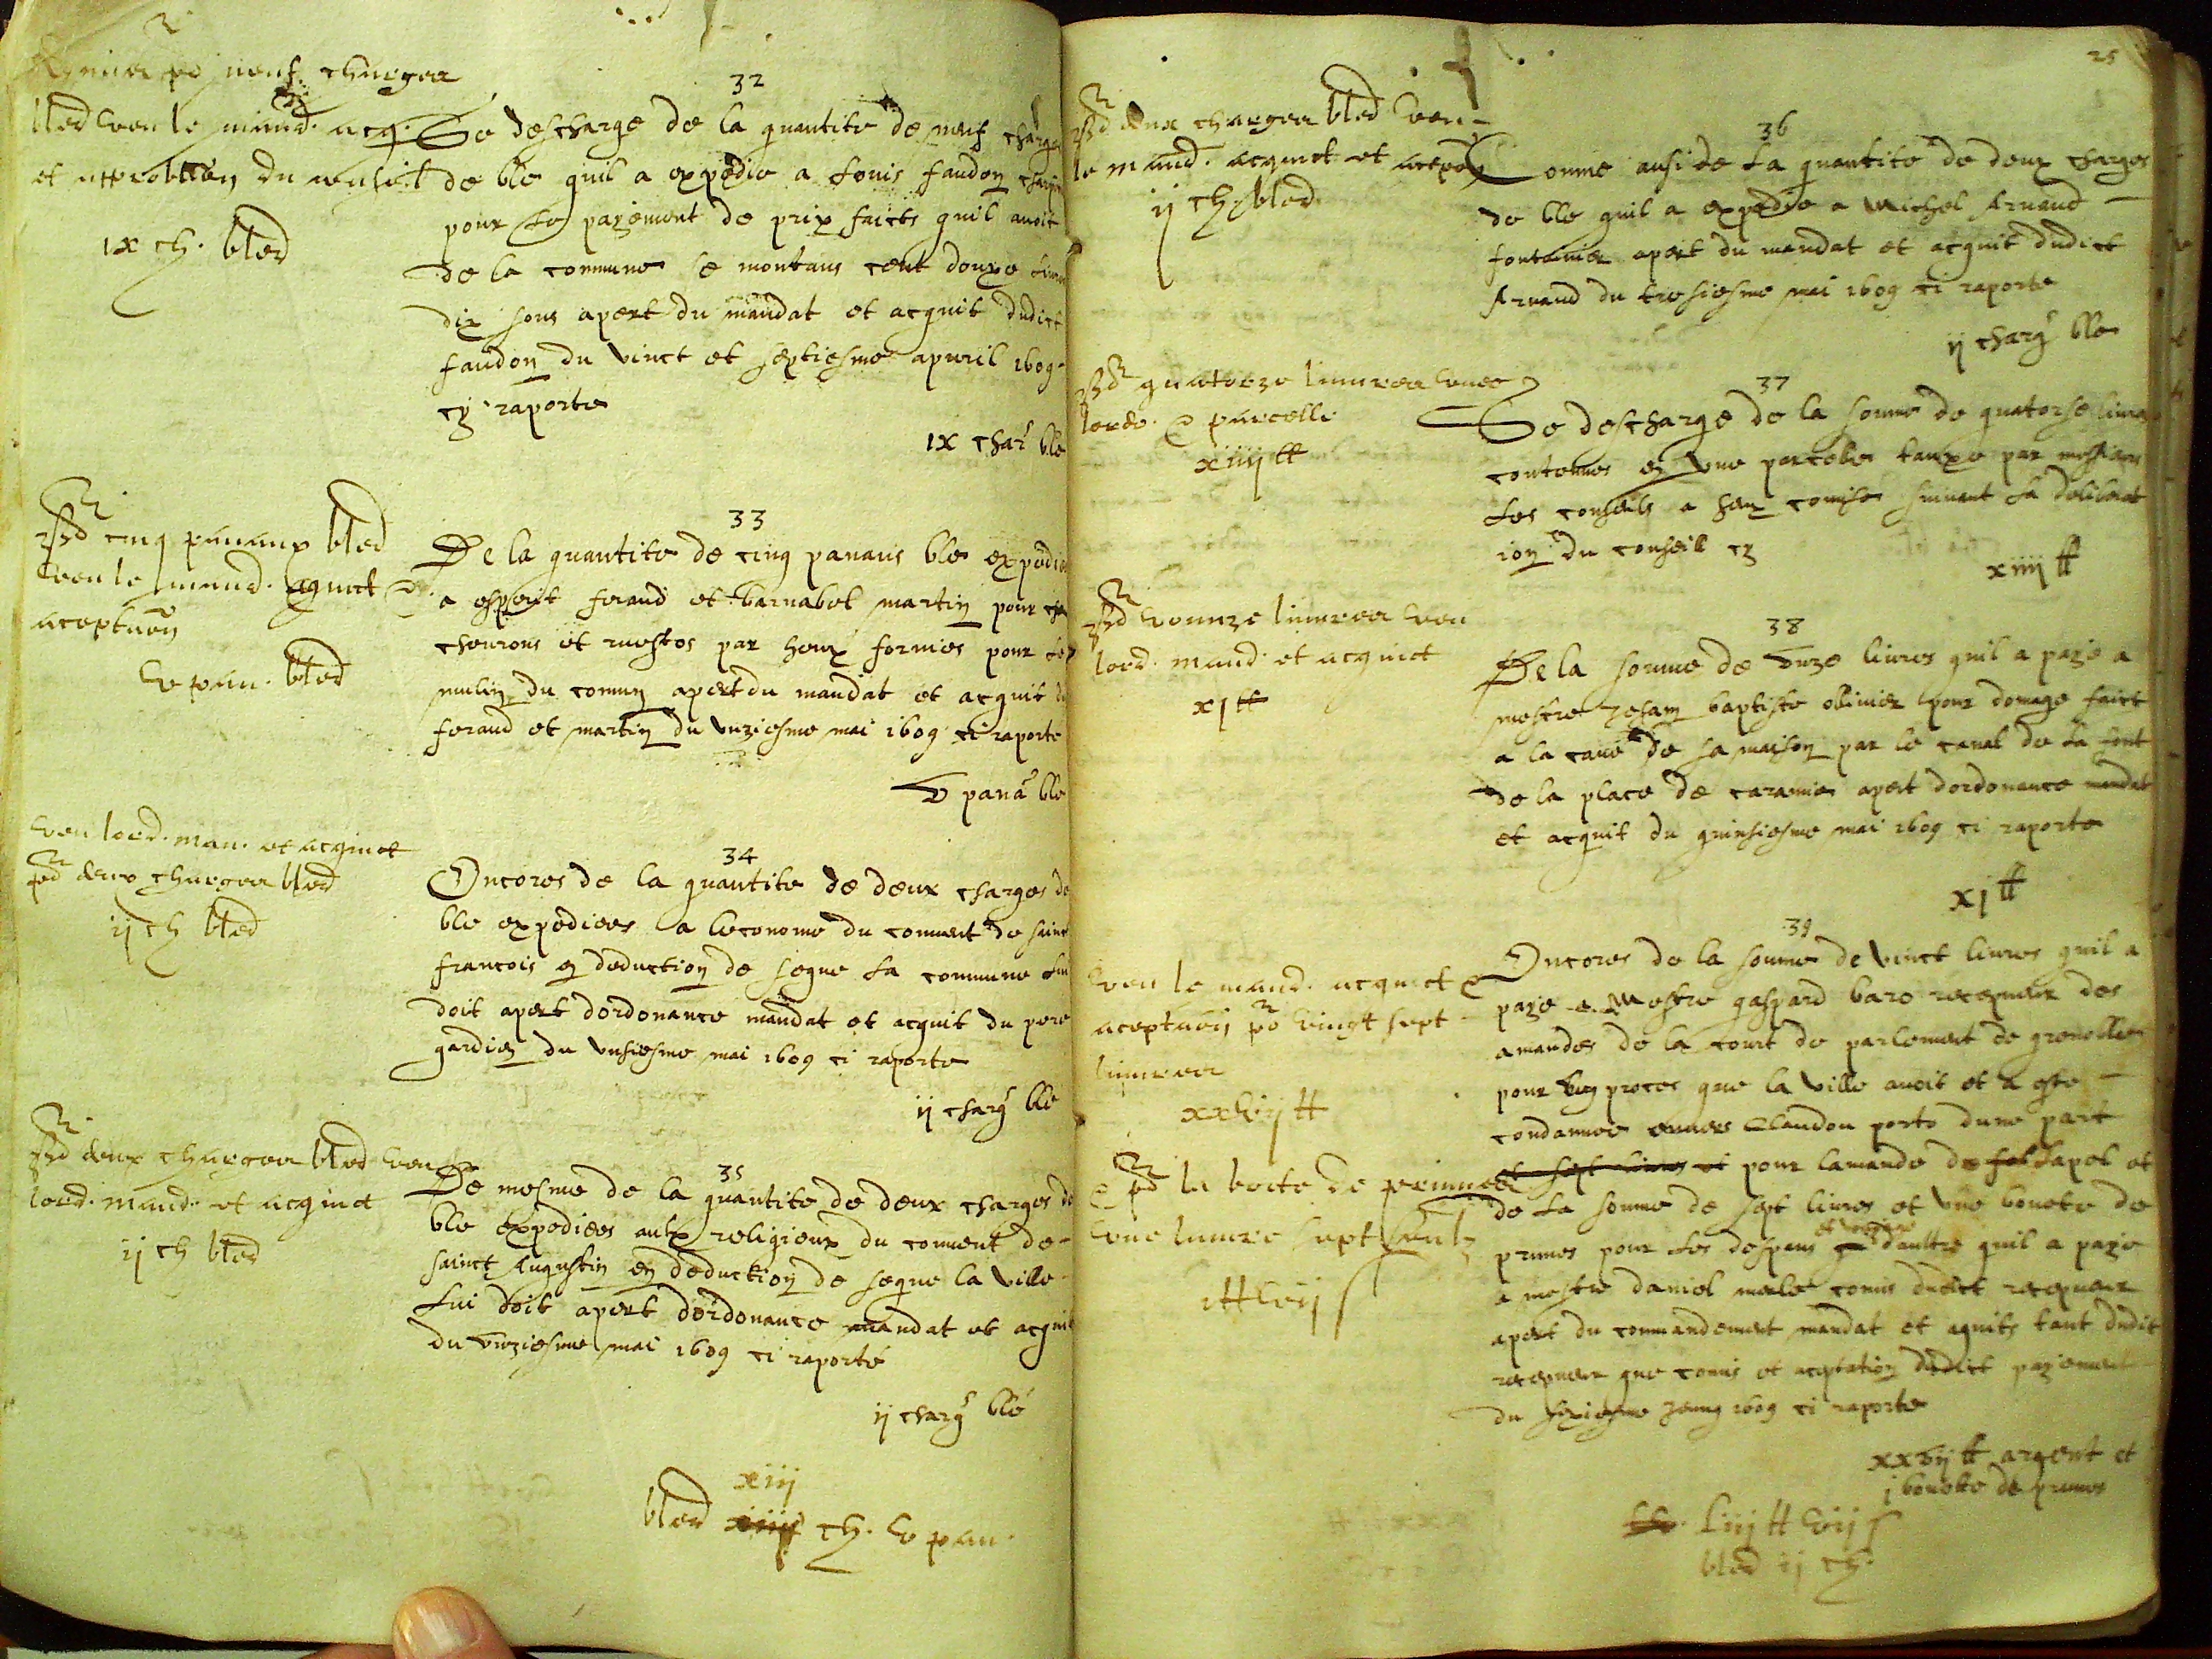 neuf charges
bled veu le mand. acq.
et acceptation du conseil
ix ch. bled
32
Se descharge de la quantite de neuf charges
de ble quil a expedie a Louis faudon
pour le paÿement de prix faicts quil avoit
de la commune se montans cent douze livres
dix sous apert du mandat et acquit dudict
faudon du vinct et septiesme apvril 1609
cy raporte
ix char ble
cinq panaux bled
veu le mand. aquict &
aceptaõn
v pan. bled
33
De la quantite de cinq panaus ble expedie
a esperit feraud et barnabel martin pour
chevrons et par heux fornies pour le
mulin du comun apert du mandat et acquit du
feraud et martin du unziesme mai 1609 ci raporte
v pana ble
veu lord. man. et acquict
deux charges bled
ij ch bled
34
Encores de la quantite de deux charges de
ble expediees a leconome du couvent de sainct
francois en deduction de seque la commune lui
doit apert dordonance mandat et acquit du pere
gardien du unsiesme mai 1609 ci raporte
ij charg ble
deux charges bled veu
lord. mand. et acquict
ij ch bled
35
De mesme de la quantite de deux charges de
ble expediees aulx religieux du couvent de
sainct Augustin en deduction de seque la ville
lui doit apert dordonance mandat et acquit
du unziesme mai 1609 ci raporté
ij charg blé
xiij
bled xiiij ch. v pan.
25
deux charges bled veu
le mand. acquict et acepõn
ij ch bled
36
Comme ausi de la quantite de deux charges
de ble quil a expedie a Michel Arnaud
fontanier apert du mandat et acquit dudict
Arnaud du tresiesme mai 1609 ci raporte
ij charg ble
quatorze livres veues
lordo. & parcelle
xiiij tt
37
Se descharge de la somme de quatorse livres
contenues en une parcelle tauxe par messieurs
les conseuls a heux comise suivant la deliberat
ion du conseil cy
xiiij tt
vounze livres veu
lord. mand. et acquict
xj tt
38
De la somme de unze livres quil a paÿe a
mestre Jehan baptiste olivier pour domage faict
a la cave de sa maison par le canal de la font
de la place de caramie apert dordonance mandat
et acquit du quinsiesme mai 1609 ci raporte
xj tt
veu le mand. acquict &
aceptaõn vingt sept
livres
xxvij tt
& la boete de prunes
une livre sept soulz
j tt vij s
39
Encores de la somme de vinct livres quil a
paÿe a Mestre gaspard baro recepveur des
amandes de la court de parlement de grenoble
pour ung proces que la ville avoit et a este
condannee envers Claudon porte dune part
et sept livres et pour lamande de fol lapel et
de la somme de sept livres et une bouete de
prunes pour les despans daultre quil a paÿe
a mestre daniel merle comis dudict recepveur
apert du commandement mandat et aquits tant dudit
recepveur que comis et aceptation dudict paÿement
du sixiesme Jeung 1609 ci raporte
xxvij tt argent et
j bouette de prunes
liij tt vij s
bled ij ch.